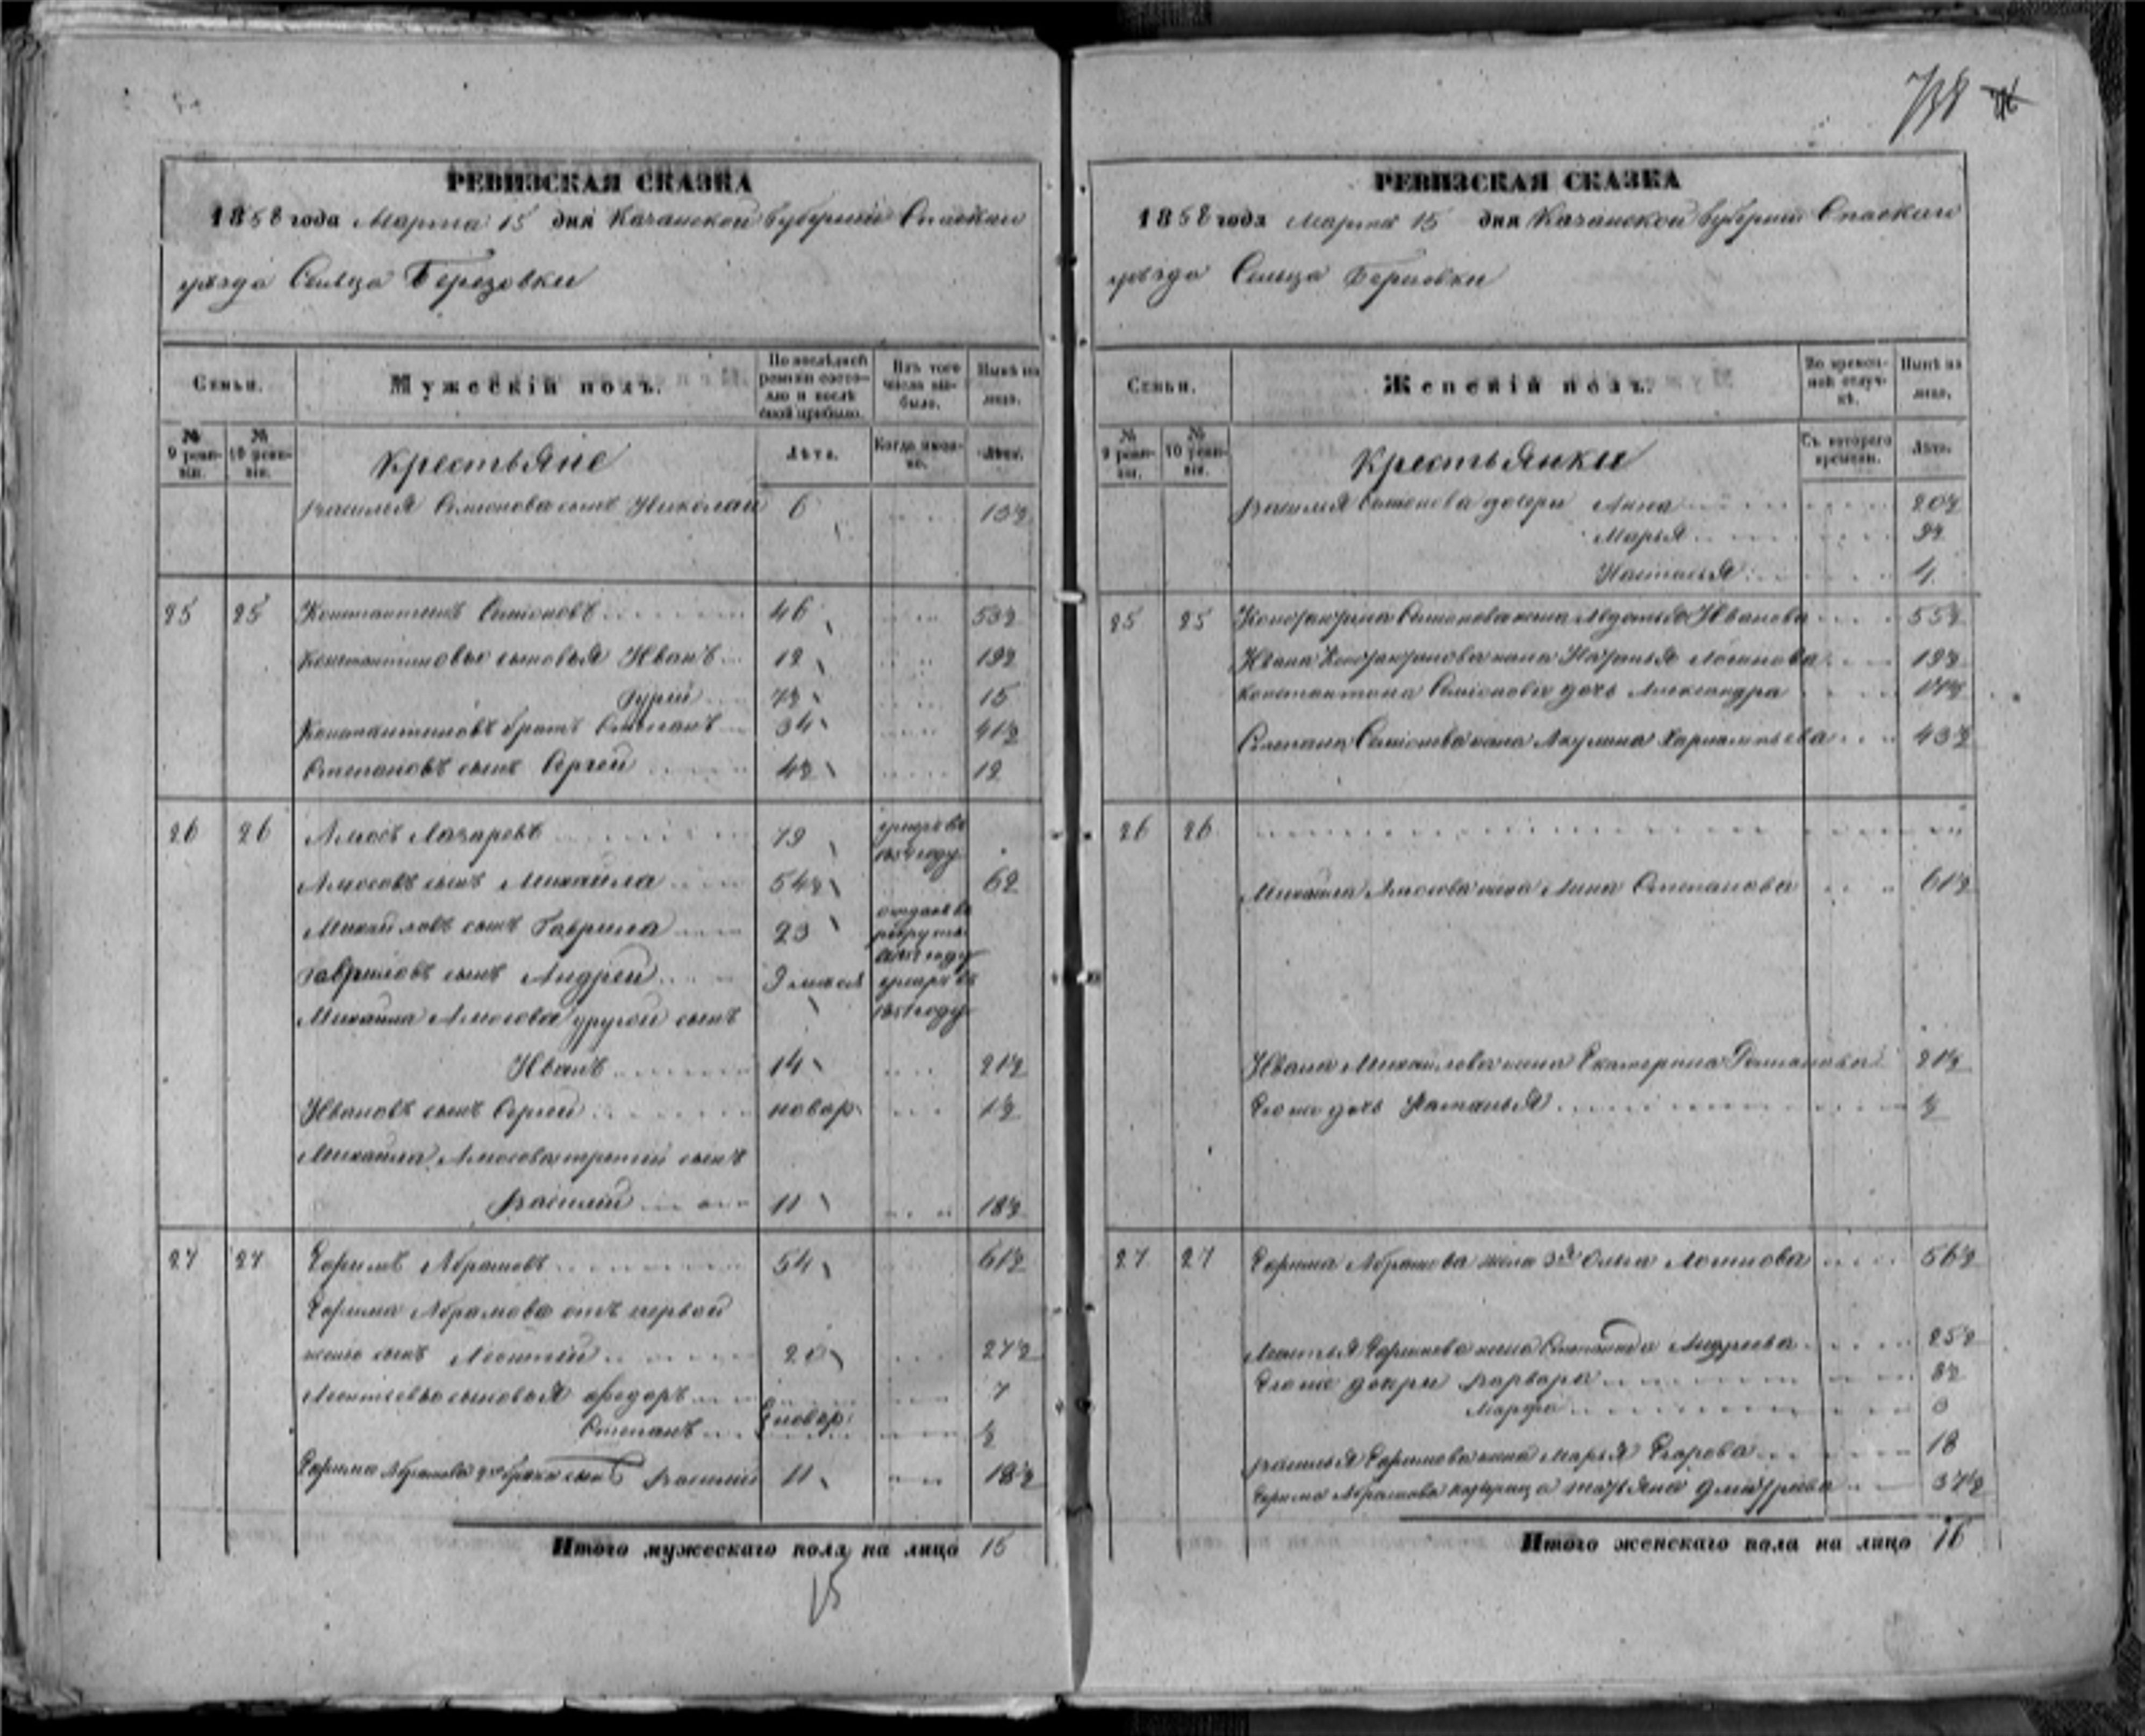 738
РЕВИЗСКАЯ СКАЗКА
1858 года Марта 15 дня Казанской Губернии Спаскаго
уѣзда Сельца Березовки
Семьи.
Мужескій полъ.
По послѣдней ревизіи состояло и послѣ оной прибыло.
Изъ того числа выбыло.
Нынѣ на лицо.
№ 9 ревизіи.
№ 10 ревизіи.
Крестьяне
Лѣта.
Когда именно.
Лѣта.
Василья Семіонова сынъ Николай 6 13½
25 25 Константинъ Семіоновъ 46 53½
Константиновы сыновья Иванъ 12 19½
Гурій 7½ 15
Константиновъ братъ Степанъ 34 41½
Степановъ сынъ Сергей 4½ 12
26 26 Амосъ Лазаревъ 79 умеръ въ
1854 году
Амосовъ сынъ Михайла 54½ 62
Михайловъ сынъ Гаврила 23 отданъ въ
рекруты
году
Гавриловъ сынъ Андрей 9 умеръ въ
1851 году
Михайла Амосова другой сынъ
Иванъ 14 21½
Ивановъ сынъ Сергей новор. 1½
Михайла Амосова третій сынъ
Василій 11 18½
27 27 Ефимъ Абрамовъ 54 61½
Ефима Абрамова отъ первой
жены сынъ Леонтій 20 27½
Леонтьевы сыновья Федоръ 7
Степанъ новор. ½
Ефима Абрамова 2го брака сынъ Василий 11 18½
Итого мужескаго пола на лицо 15
15
РЕВИЗСКАЯ СКАЗКА
1858 года Марта 15 дня Казанской Губернии Спаскаго
уѣзда Сельца Березовки
Семьи.
Женскій полъ.
Во временной отлучкѣ.
Нынѣ на лицо.
№ 9 ревизіи.
№ 10 ревизіи.
Крестьянки
Съ котораго времени.
Лѣта.
Василья Семенова дочери Анна 20½
Марья 9½
Настасья 4
25 25 Константина Семионова жена Авдотья Иванова 55½
Ивана Константинова жена Наталья Логинова 19½
Константина Семіонова дочь Александра 17½
Степана Семионова жена Акулина Харлампьева 43½
26 26
Михайла Амосова жена Анна Степанова 61½
Ивана Михайлова жена Екатерина 21½
Его же дочь Наталья ½
27 27 Ефима Абрамова жена 3я Ольга Логинова 56½
Леонтья Ефимова жена Степанида Андреева 25½
Его же дочери Варвара 8½
Марфа 3
Василья Ефимова жена Марья Егорова 18
Ефима Абрамова Татьяна Дмитриева 37½
Итого женскаго пола на лицо 16